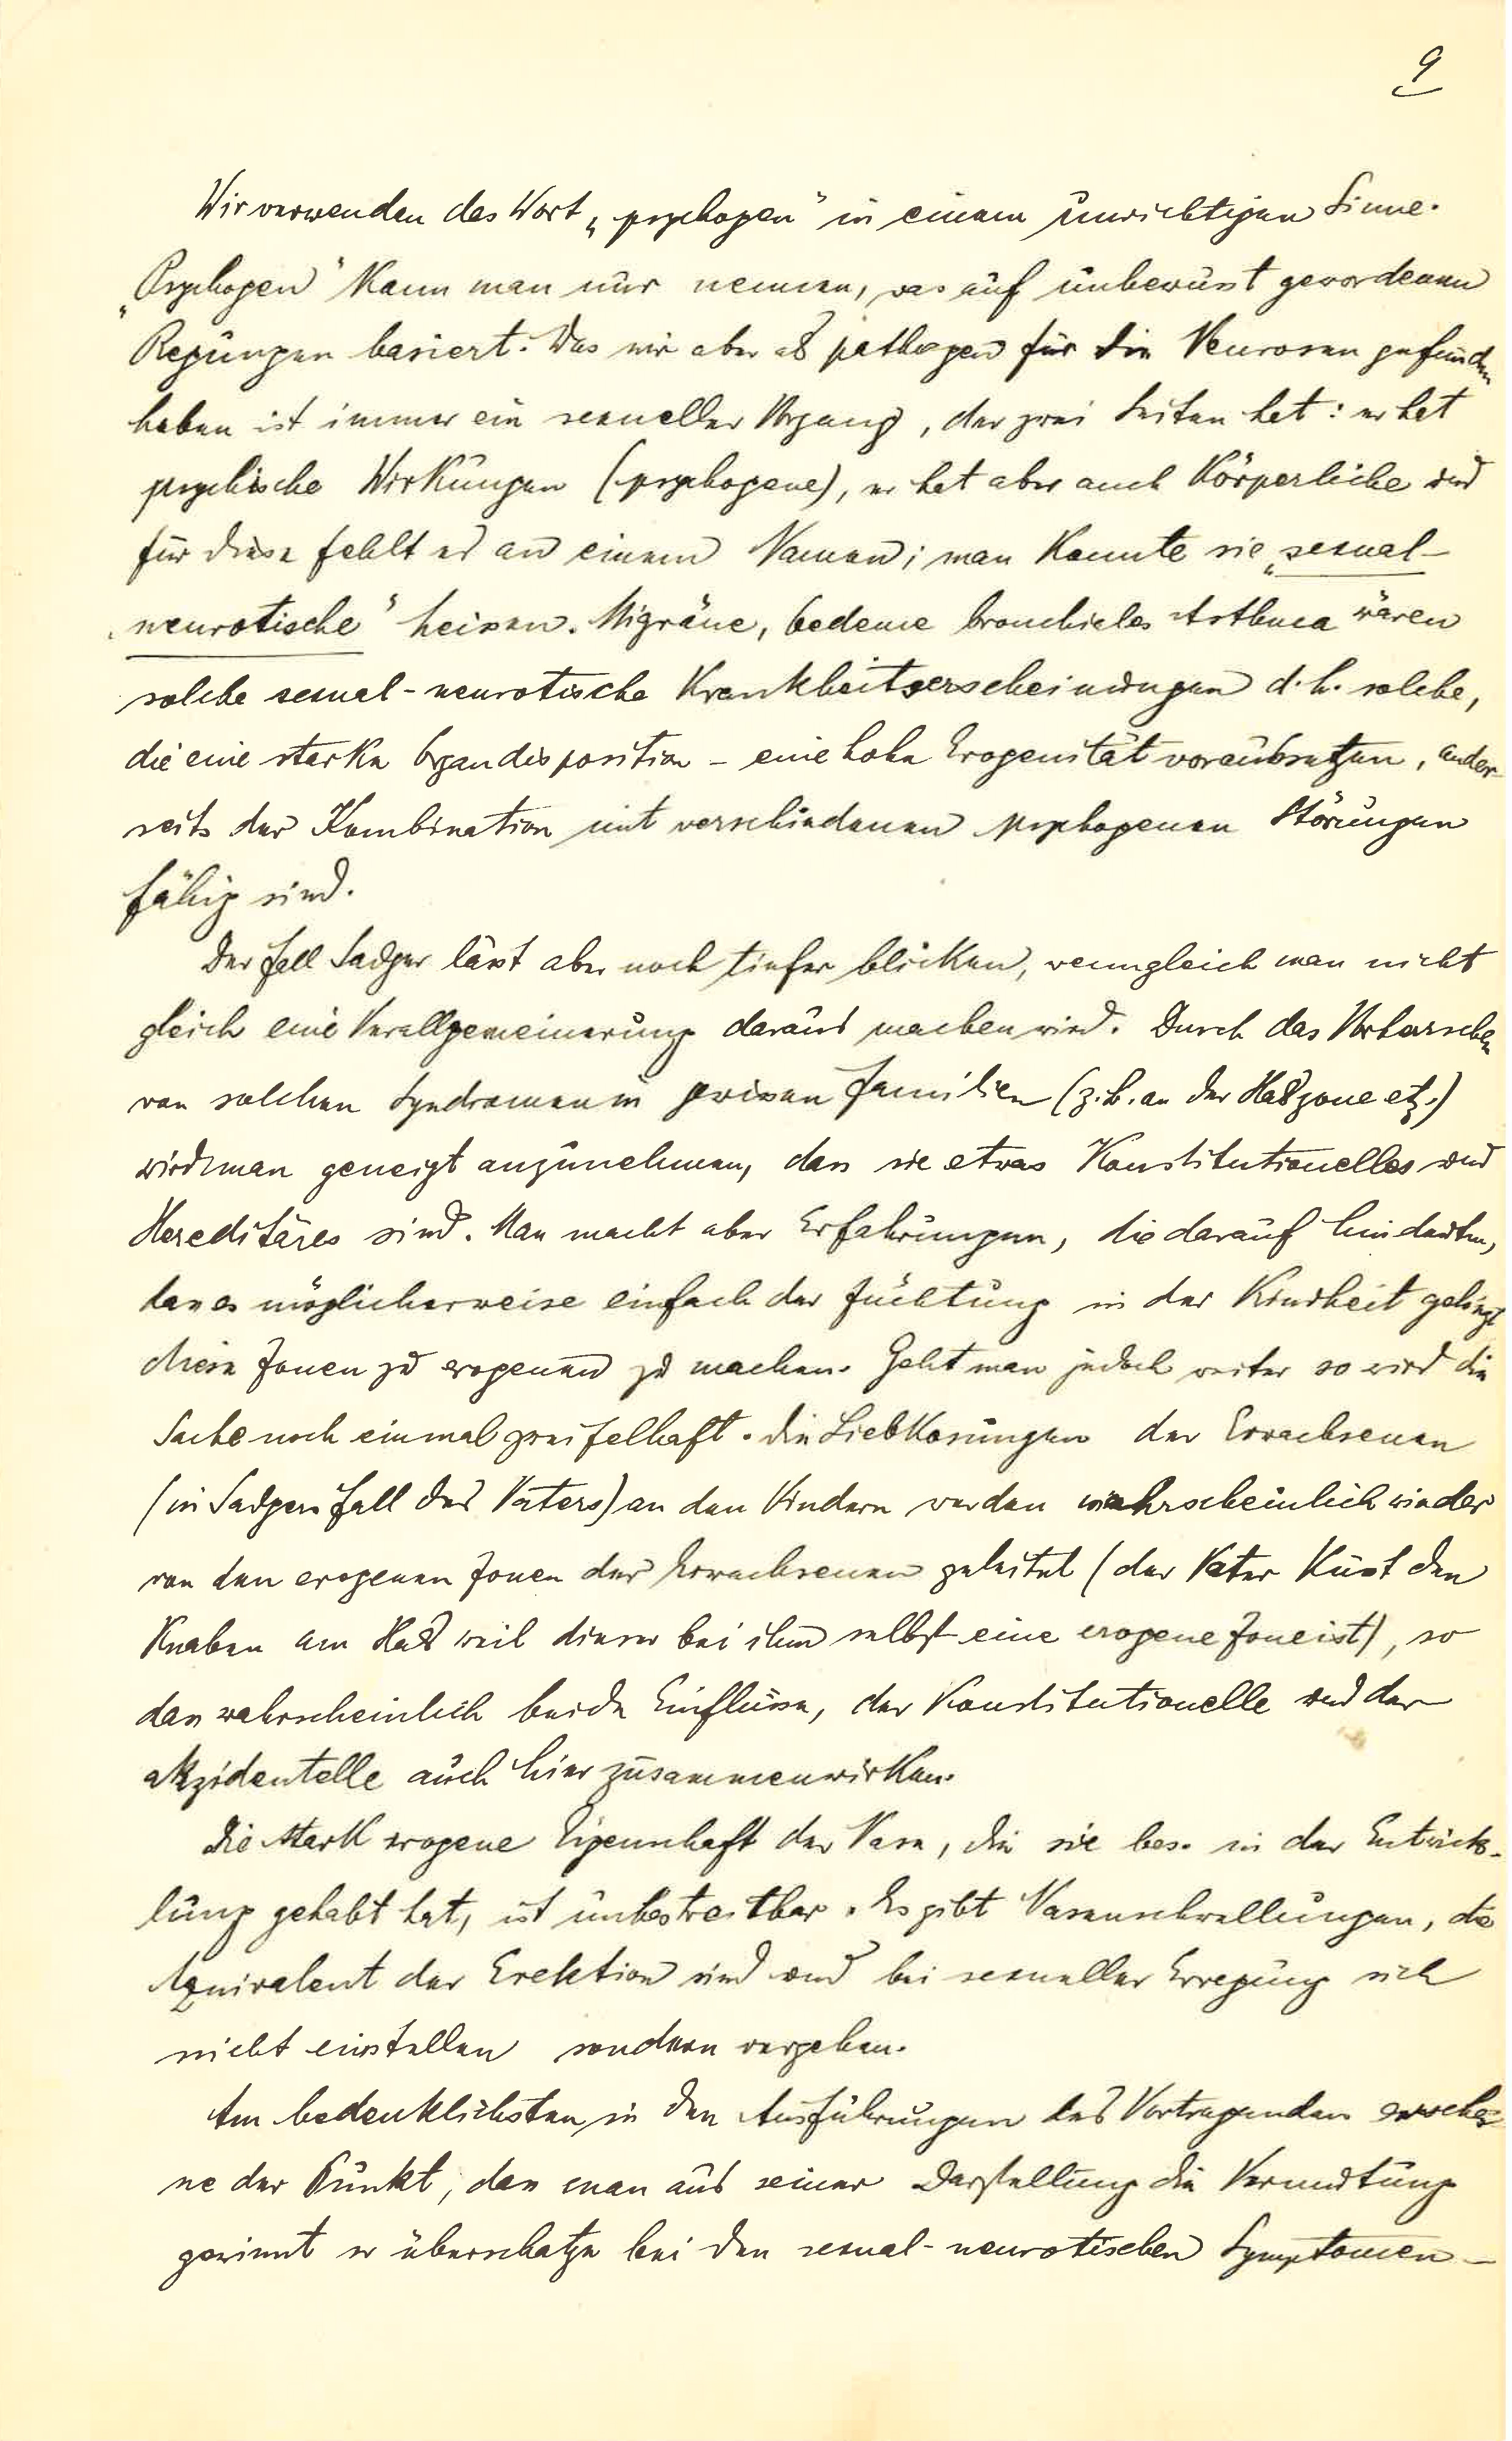 9
Wir verwenden das Wort „psychogen" in einem unrichtigen Sinne.
„Psychogen" kann man nur nennen, was auf unbewusst gewordenen
Regungen basiert. Was wir aber als pathogen für die Neurosen gefunden
haben ist immer ein sexueller Vorgang, der zwei Seiten hat: er hat
psychische Wirkungen (psychogene), er hat aber auch körperliche und
für diese fehlt es an einem Namen; man konnte sie „sexual-
neurotische" heissen. Migräne, Oedeme bronchiales Asthma wären
solche sexual-neurotische Krankheitserscheinungen d.h. solche,
die eine starke Organdisposition – eine hohe Erogenität voraussetzen, ander-
seits der Kombination mit verschiedenen psychogenen Störungen
fähig sind.
Der Fall Sadger lässt aber noch tiefer blicken, wenngleich man nicht
gleich eine Verallgemeinerung daraus machen wird. Durch das Vorherrschen
von solchen Syndromen in gewissen Familien (z.B. an der Halszone etz.)
wird man geneigt anzunehmen, dass sie etwas Konstitutionelles und
Hereditäres sind. Man macht aber Erfahrungen, die darauf hindeuten,
dass es möglicherweise einfach der Züchtung in der Kindheit gelingt
diese Zonen zu erogenen zu machen. Geht man jedoch weiter so wird die
Sache noch einmal zweifelhaft. Die Liebkosungen der Erwachsenen
(in Sadgers Fall des Vaters) an den Kindern werden wahrscheinlich wieder
von den erogenen Zonen der Erwachsenen geleitet (der Vater küsst den
Knaben am Hals weil dieser bei ihm selbst eine erogene Zone ist), so
dass wahrscheinlich beide Einflüsse, der konstitutionelle und der
akzidentelle auch hier zusammenwirken.
Die stark erogene Eigenschaft der Nase, die sie bes. in der Entwick-
lung gehabt hat, ist unbestreitbar. Es gibt Nasenschwellungen, die
Äquivalent der Erektion sind und bei sexueller Erregung sich
nicht einstellen sondern vergehen.
Am bedenklichsten in den Ausführungen des Vortragenden erschei-
ne der Punkt, dass man aus seiner Darstellung die Vermutung
gewinnt er überschatze bei den sexual-neurotischen Symptomen –